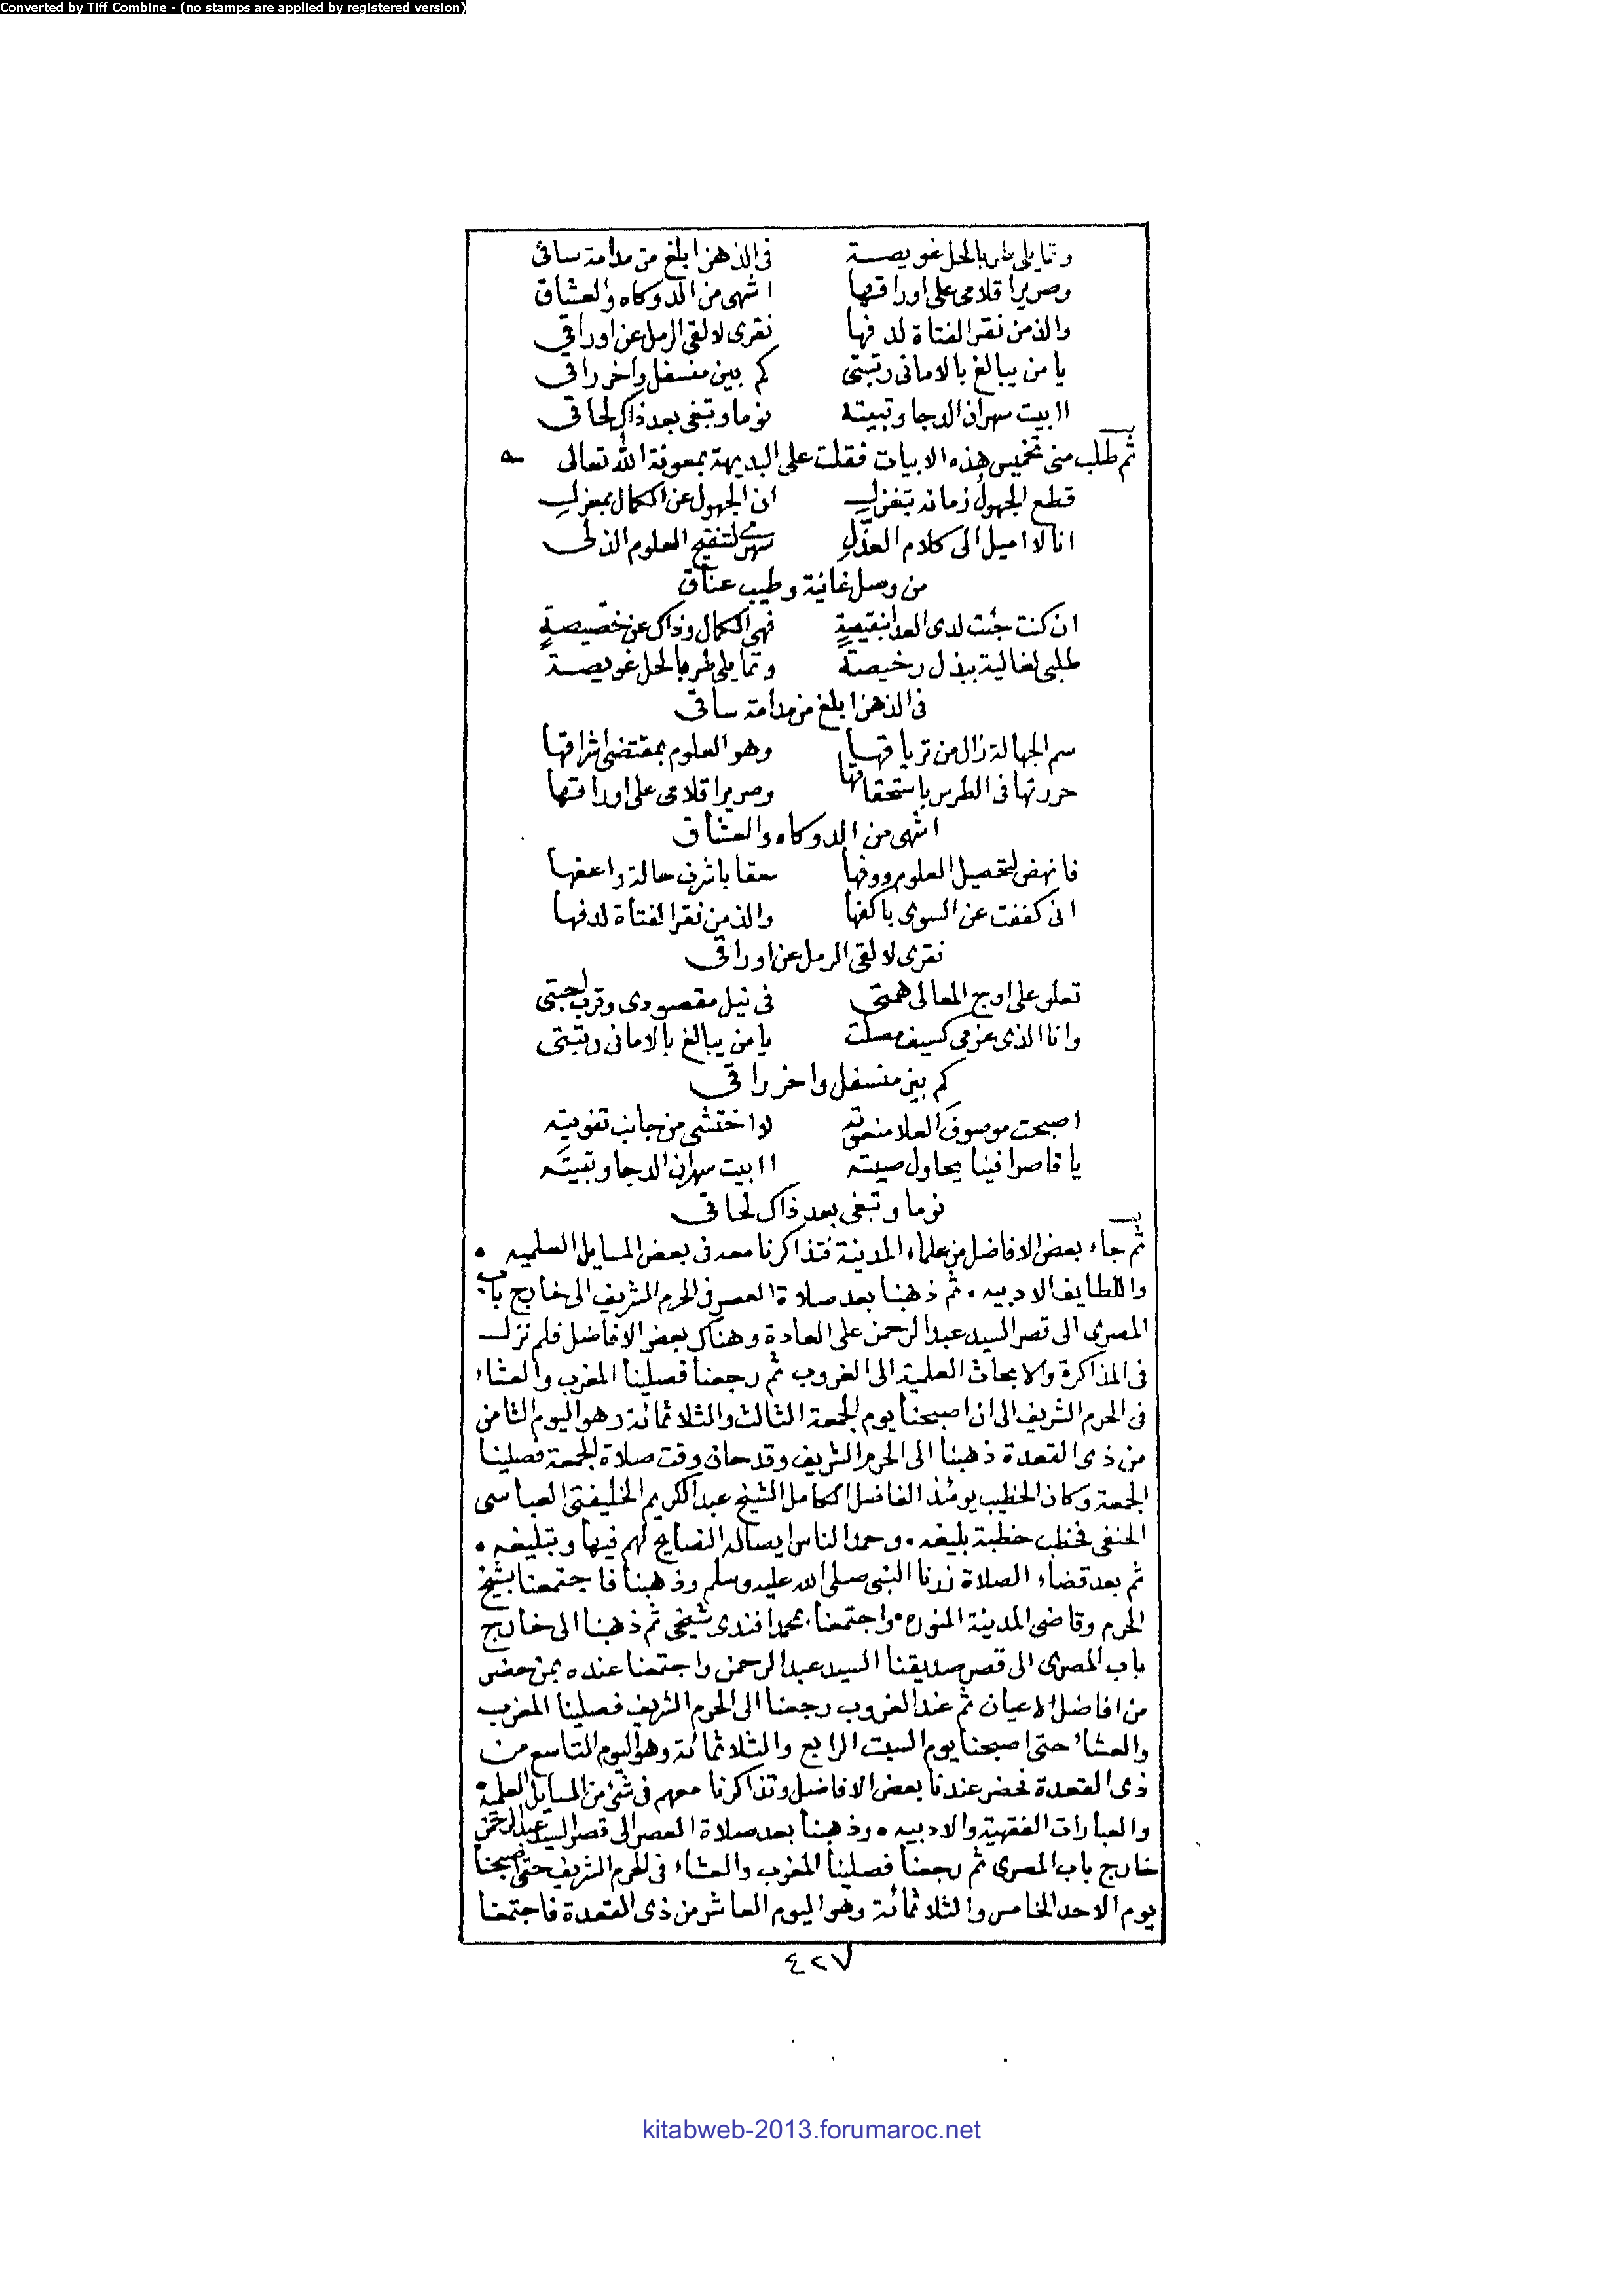 Converted by Tiff Combine - (no stamps are applied by registered version)
وتمايلي طربا لحل عويصة في الذهن ابلغ من مدامة ساقى
وصرير اقلامى على اوراقها اشهى من الدوكاه والعشاق
والذ من نقر الفتاة لدفها نقرى لالقى الرمل عن اوراقى
يا من يبالغ بالامانى رتبتى كم بين منسفل واخر راقى
اابيت سهران الدجا وتبيته نوما وتبغى بعد ذاك لحاقى
ثم طلب منى تخميس هذه الابيات فقلت على البديهة بمعونة الله تعالى
قطع الجهول زمانه بتغزل ان الجهول عن الكمال بمعزل
انا لا اميل الى كلام العذّل سهرى لتنقيح العلوم الذ لى
من وصل غانية وطيب عناق
ان كنت جئت لدى العدا بنقيصةٍ فهى الكمال وذاك عن خصّيصةٍ
طلبى لغالية ببذل رخيصة وتمايلى طربا لحل عويصة
فى الذهن ابلغ من مدامة ساقى
سم الجهالة زال من ترياقها وهو العلوم بمقتضى اشراقها
حررتها فى الطرس باستحقاقها وصرير اقلامى على اوراقها
اشهى من الدوكاه والعشاق
فانهض لتحصيل العلوم ووفها حقا باشرف حالة واعفها
انى كففت عن السوى باكفها والذ من نقر الفتاة لدفها
نقرى لالقى الرمل عن اوراقى
تعلو على اوج المعالى همتى فى نيل مقصودى وقرب احبتى
وانا الذى عزمى كسيف مصلت يا من يبالغ بالامانى رتبتى
كم بين منسفل واخر راقى
اصبحت موصوف العلا منعوته لا اختشى من جانب تفويته
يا قاصرا فينا يحاول صيته اابيت سهران الدجا وتبيته
نوما وتبغى بعد ذاك لحاقى
ثم جاء بعض الافاضل من علماء المدينة فتذاكرنا معه فى بعض المسايل العلميه •
واللطايف الادبيه • ثم ذهبنا بعد صلاة العصر فى الحرم الشريف الى خارج باب
المصرى الى قصر السيد عبد الرحمن على العادة وهناك بعض الافاضل فلم نزل
فى المذاكرة والابحاث العلمية الى الغروب ثم رجعنا فصلينا المغرب والعشاء
فى الحرم الشريف الى ان اصبحنا يوم الجمعة الثالث والثلاثمائة وهو اليوم الثامن
من ذى القعدة ذهبنا الى الحرم الشريف وقد حان وقت صلاة الجمعة فصلينا
الجمعة وكان الخطيب يومئذ الفاضل الكامل الشيخ عبد الكريم الخليفتى العباسى
الحنفى فخطب خطبة بليغه • وحمد الناس ايصاله النصايح لهم فيها وتبليغه •
ثم بعد قضاء الصلاة زرنا النبى صلى الله عليه وسلم وذهبنا فاجتمعنا بشيخ
الحرم وقاضى المدينة المنوره • واجتمعنا بمحمد افندى شيخى ثم ذهبنا الى خارج
باب المصرى الى قصر صديقنا السيد عبد الرحمن واجتمعنا عنده بمن حضر
من افاضل الاعيان ثم عند الغروب رجعنا الى الحرم الشريف فصلينا المغرب
والعشاء حتى اصبحنا يوم السبت الرابع والثلاثمائة وهو اليوم التاسع من
ذى القعدة فحضر عندنا بعض الافاضل وتذاكرنا معهم فى شئ من المسايل العلمية •
والعبارات الفقهية والادبيه • وذهبنا بعد صلاة العصر الى قصر السيد عبد الرحمن
خارج باب المصرى ثم رجعنا فصلينا المغرب والعشاء فى الحرم الشريف حتى اصبحنا
يوم الاحد الخامس والثلاثمائة وهو اليوم العاشر من ذى القعدة فاجتمعنا
٤٢٧
kitabweb-2013.forumaroc.net